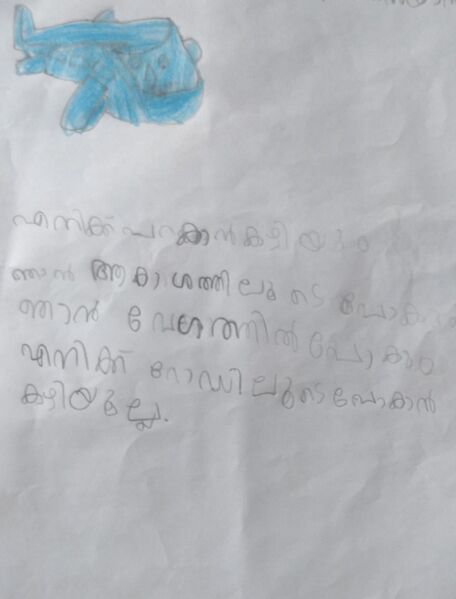 എനിക്ക് പറക്കാൻ കഴിയും
ഞാൻ ആകാശത്തിലൂടെ പോകും
ഞാൻ വേഗത്തിൽ പോകും
എനിക്ക് റോഡിലൂടെ പോകാൻ
കഴിയില്ല.